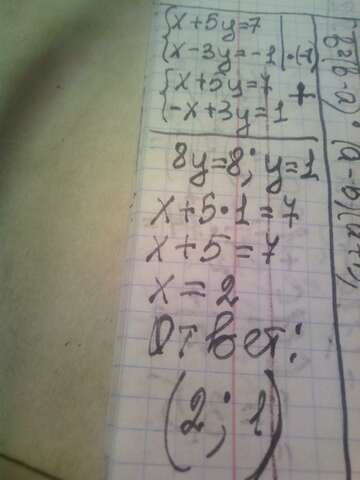 {x+5y=7
{x-3y=-1 |·(-1)
{x+5y=7
{-x+3y=1 +
8y=8; y=1
x+5·1=7
x+5=7
x=2
Ответ:
(2; 1)